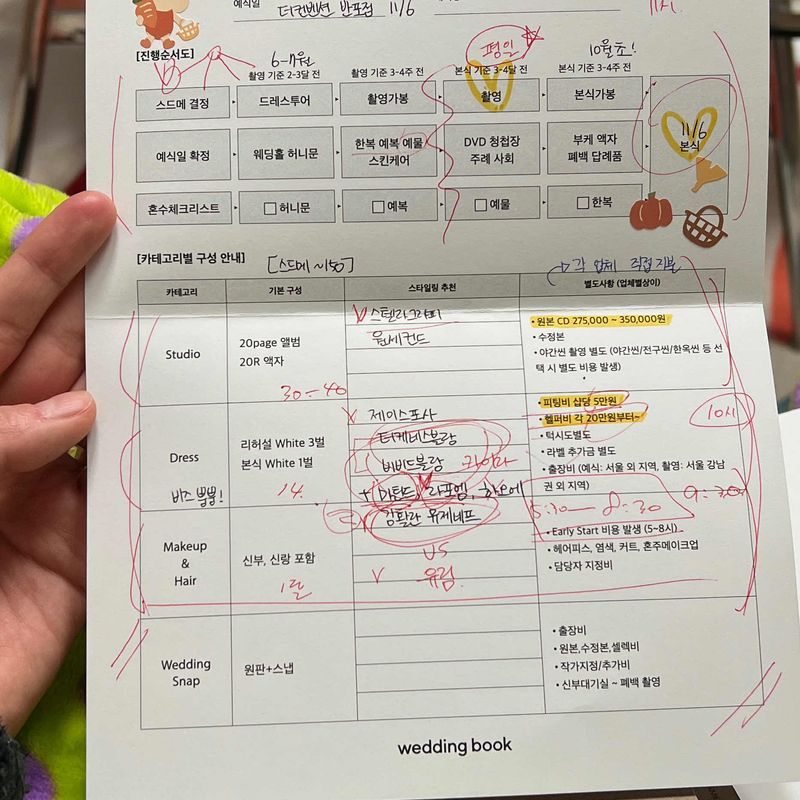 예식일 더컨벤션 반포점 11/6
11시.
[진행순서도]
6-7월
평일
10월초!
촬영 기준 2-3달 전
촬영 기준 3-4주 전
본식 기준 3-4달 전
본식 기준 3-4주 전
스드메 결정
드레스투어
촬영가봉
촬영
본식가봉
11/6
본식
예식일 확정
웨딩홀 허니문
한복 예복 예물
스킨케어
DVD 청첩장
주례 사회
부케 액자
폐백 답례품
혼수체크리스트
허니문
예복
예물
한복
[카테고리별 구성 안내]
[스드메 ~150]
각 업체 직접지불
카테고리
기본 구성
스타일링 추천
별도사항 (업체별상이)
Studio
20page 앨범
20R 액자
30-40
스텔라그라피
원세컨드
• 원본 CD 275,000 ~ 350,000원
• 수정본
• 야간씬 촬영 별도 (야간씬/전구씬/한옥씬 등 선
택 시 별도 비용 발생)
Dress
리허설 White 3벌
본식 White 1벌
14.
제이스포사
더케네스블랑
비비드블랑
• 피팅비 샵당 5만원
• 헬퍼비 각 20만원부터~
10시
• 턱시도별도
• 라벨 추가금 별도
• 출장비 (예식: 서울 외 지역, 촬영: 서울 강남
권 외 지역)
5:30 - 8:30
9:30
Makeup
&
Hair
신부, 신랑 포함
김활란 유제네프
VS
유림.
• Early Start 비용 발생 (5~8시)
• 헤어피스, 염색, 커트, 혼주메이크업
• 담당자 지정비
Wedding
Snap
원판+스냅
• 출장비
• 원본,수정본,셀렉비
• 작가지정/추가비
• 신부대기실 ~ 폐백 촬영
wedding book